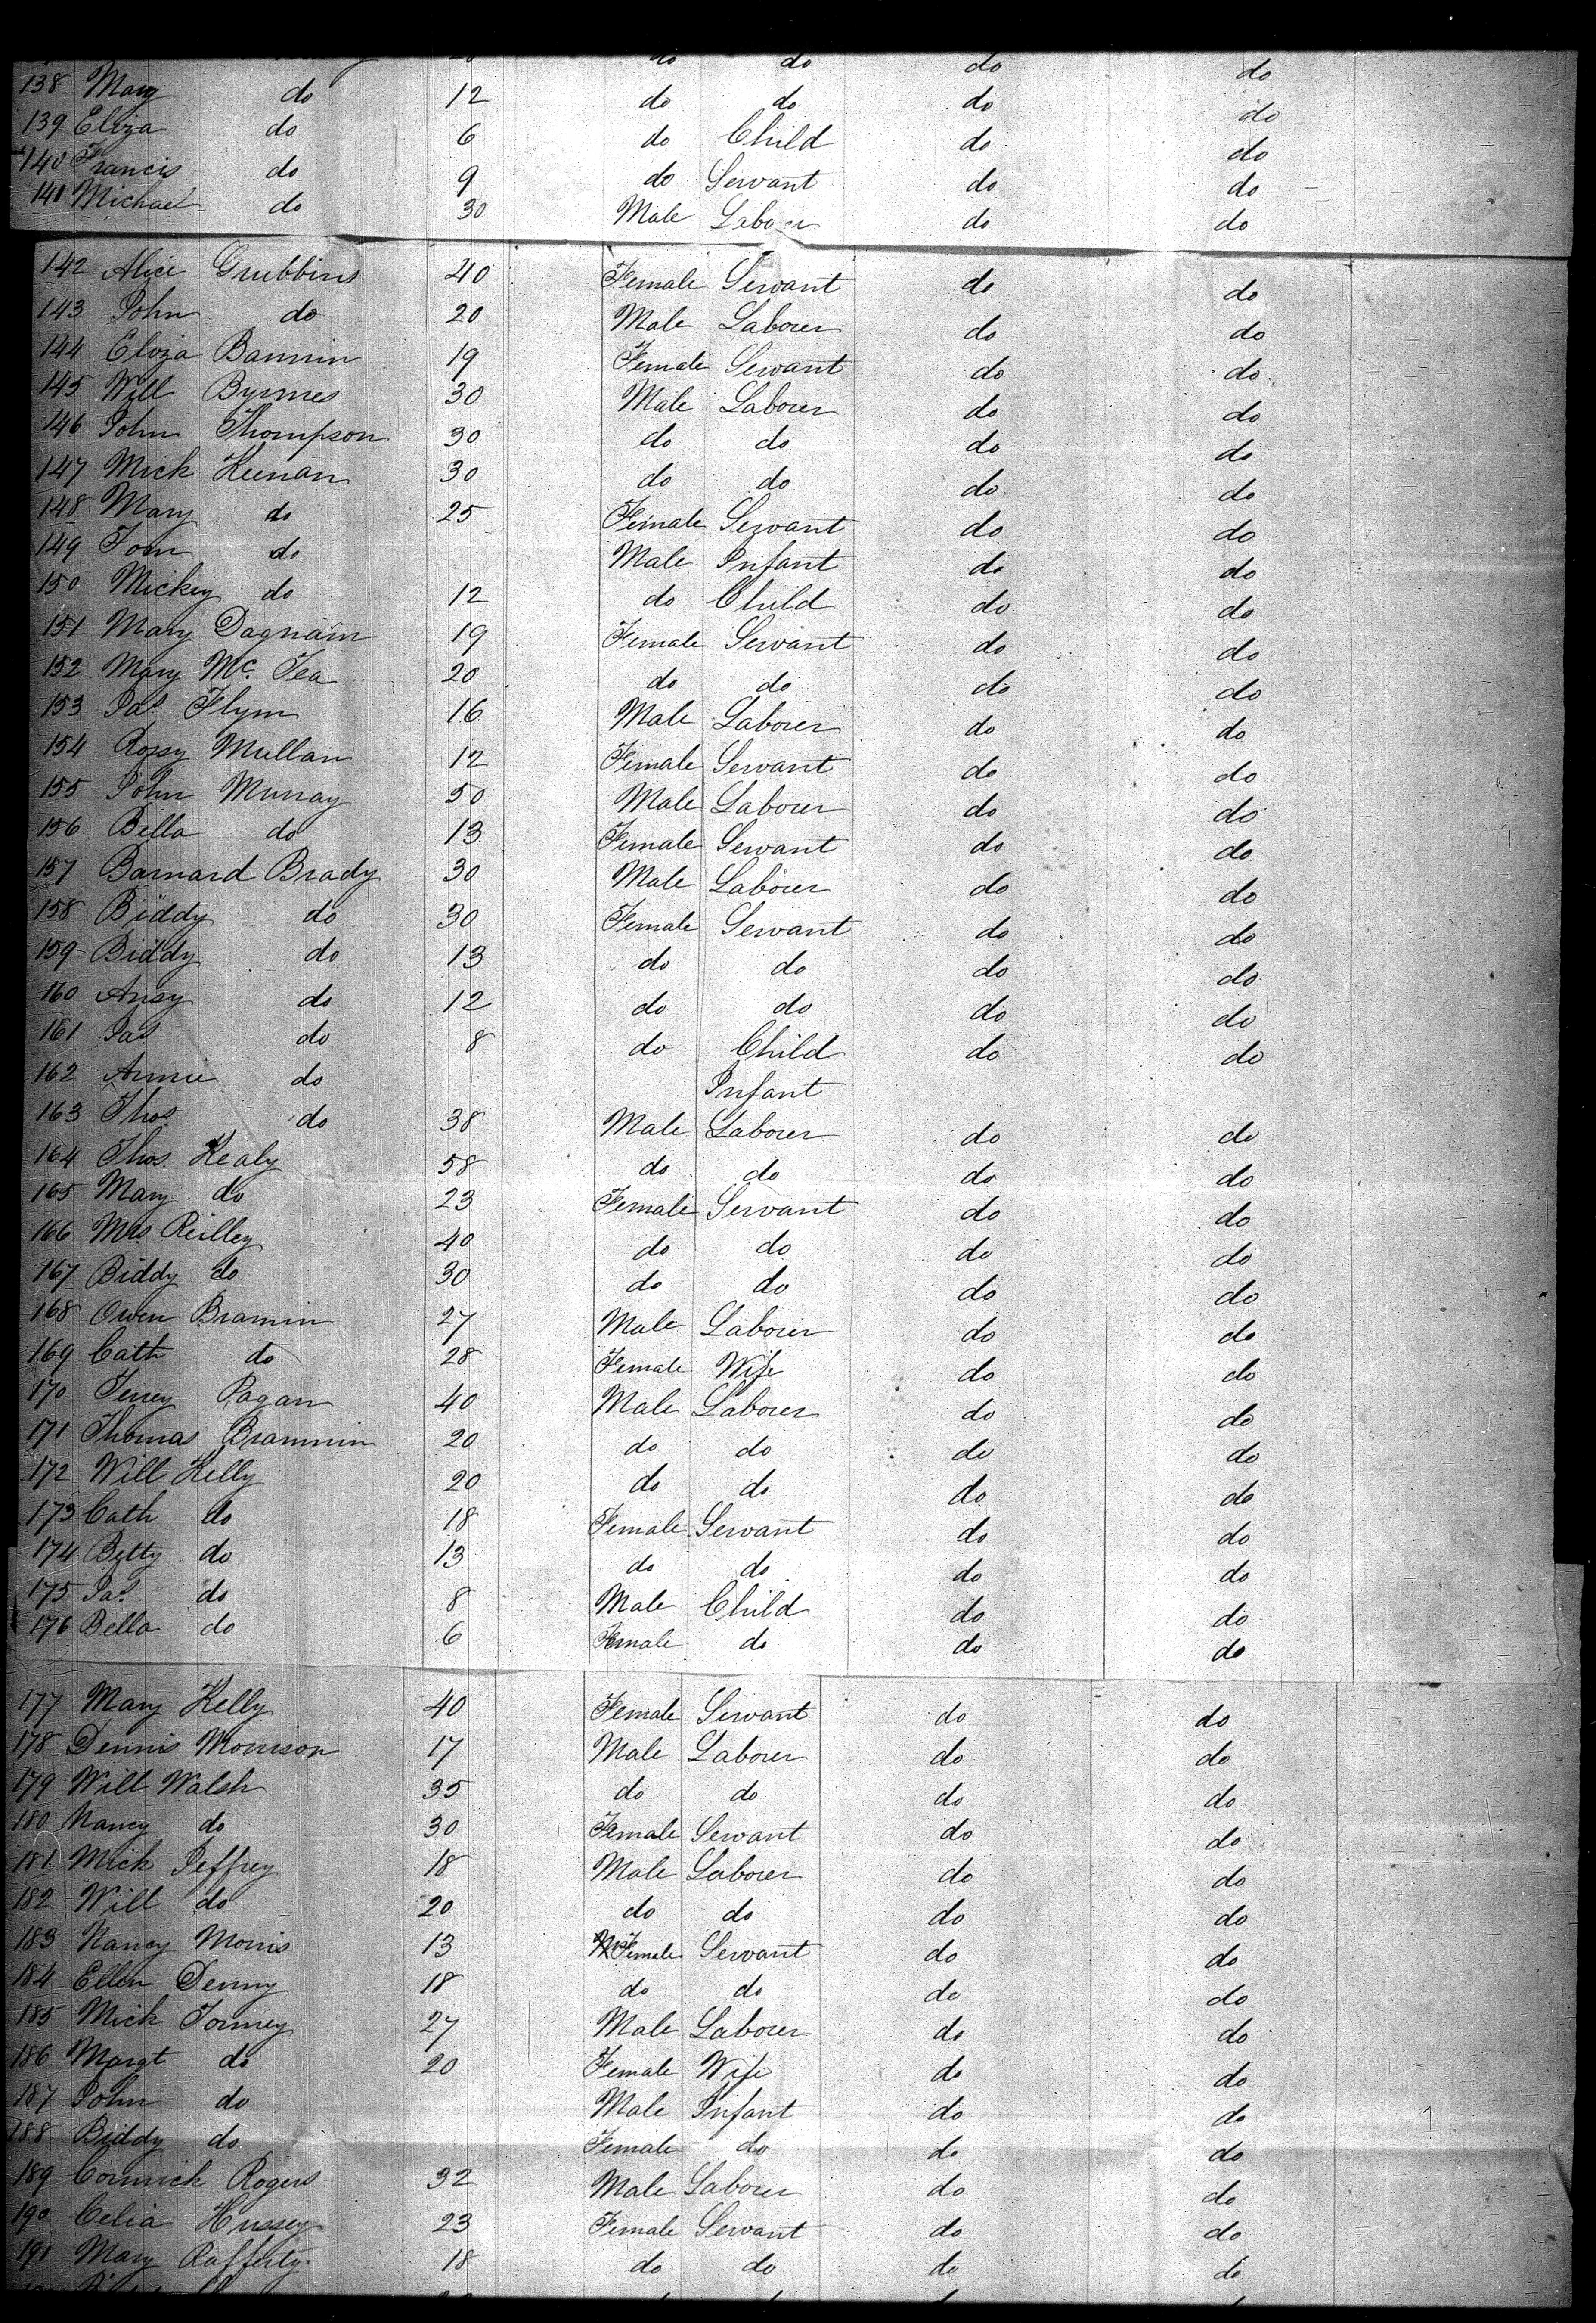 do do do do
138 Mary do 12 do do do do
139 Eliza do 6 do Child do do
140 Francis do 9 do Servant do do
141 Michael do 30 Male Labour do do
142 Alice Grubbins 40 Female Servant do do
143 John do 20 Male Laborer do do
144 Eliza Bannin 19 Female Servant do do
145 Will Byrnes 30 Male Laborer do do
146 John Thompson 30 do do do do
147 Mick Keenan 30 do do do do
148 Mary do 25 Female Servant do do
149 Tom do Male Infant do do
150 Mickey do 12 do Child do do
151 Mary Dagnam 19 Female Servant do do
152 Mary Mc. Tea 20 do do do do
153 Jas Flynn 16 Male Laborer do do
154 Rossy Mullan 12 Female Servant do do
155 John Murray 50 Male Laborer do do
156 Bella do 13 Female Servant do do
157 Barnard Brady 30 Male Laborer do do
158 Biddy do 30 Female Servant do do
159 Biddy do 13 do do do do
160 Ansy do 12 do do do do
161 Jas do 8 do Child do do
162 Annie do Infant
163 Thos. do 38 Male Laborer do do
164 Thos. Kealy 58 do do do do
165 Mary do 23 Female Servant do do
166 Mrs. Reilley 40 do do do do
167 Biddy do 30 do do do do
168 Owen Bramin 27 Male Laborer do do
169 Cath do 28 Female Wife do do
170 Terrey Pagan 40 Male Laborer do do
171 Thomas Brannnin 20 do do do do
172 Will Kelly 20 do do do do
173 Cath do 18 Female Servant do do
174 Betty do 13 do do do do
175 Jas. do 8 Male Child do do
176 Bella do 6 Female do do do
177 Mary Kelly 40 Female Servant do do
178 Dennis Morrison 17 Male Laborer do do
179 Will Walsh 35 do do do do
180 Nancy do 30 Female Servant do do
181 Mick Jeffrey 18 Male Laborer do do
182 Will do 20 do do do do
183 Nancy Morris 13 Female Servant do do
184 Ellen Denny 18 do do do do
185 Mick Tormey 27 Male Laborer do do
186 Margt do 20 Female Wife do do
187 John do Male Infant do do
188 Biddy do Female do do do
189 Cormick Rogers 32 Male Laborer do do
190 Celia Hussey 23 Female Servant do do
191 Mary Rafferty. 18 do do do do